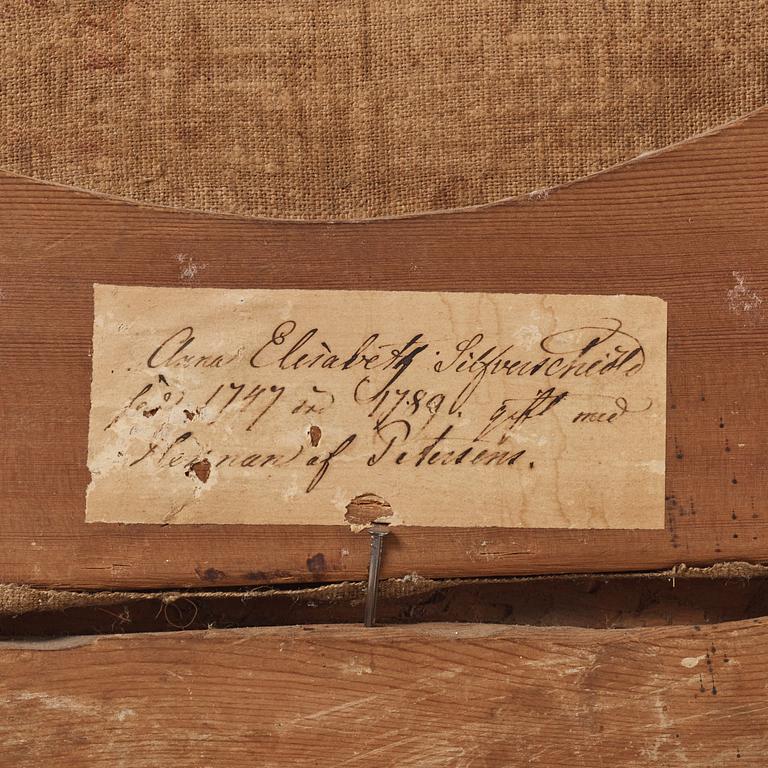 Anna Elisabeth Silfverschiöld
född 1747 död 1789. gift med
Herman af Petersens.